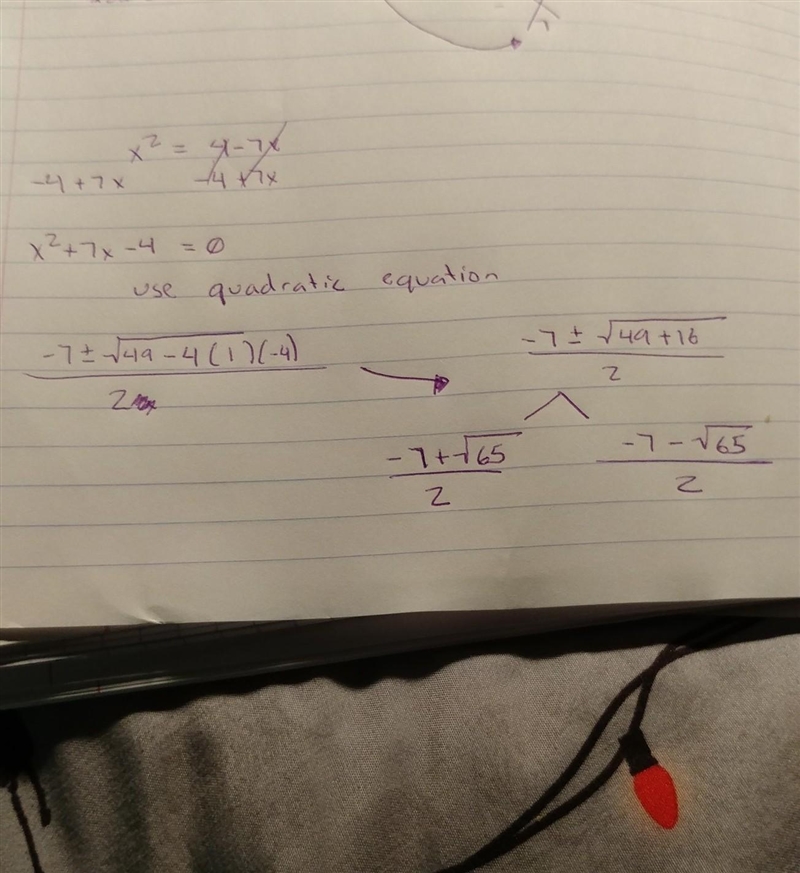 x² = 4 - 7x
-4 + 7x -4 + 7x
x² + 7x - 4 = 0
use quadratic equation
-7 ± √49 - 4(1)(-4)
2
-7 ± √49 + 16
2
-7 + √65
2
-7 - √65
2